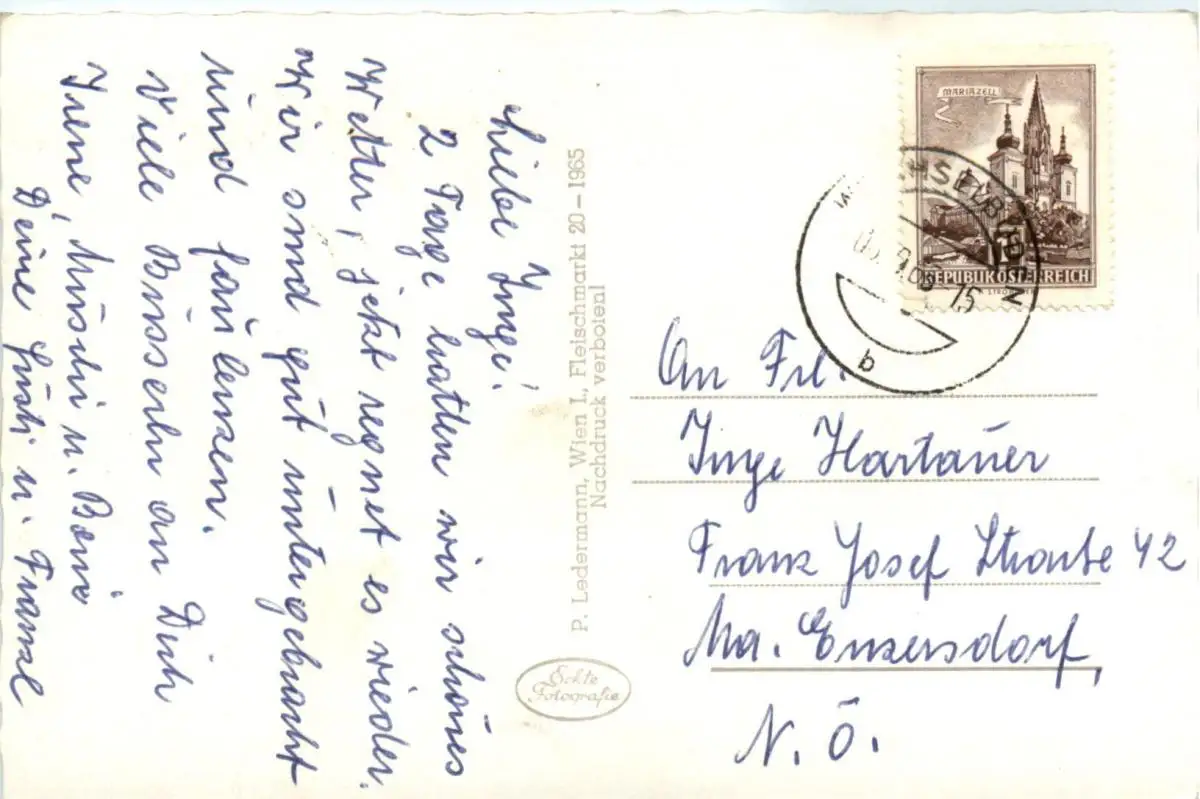 Liebe Inge!
2 Tage hatten wir schönes
Wetter, jetzt regnet es wieder.
Wir sind gut untergebracht
und faulenzen.
Viele Busserln an Dich
Irene, Muschi u. Berni
Deine Gusti u. Franzl
P. Ledermann, Wien I., Fleischmarkt 20 – 1965
Nachdruck verboten!
Echte
Fotografie
MARIAZELL
REPUBLIK ÖSTERREICH
15
b
An Frl.
Inge Hartauer
Franz Josef Straße 42
Ma. Enzersdorf,
N. Ö.